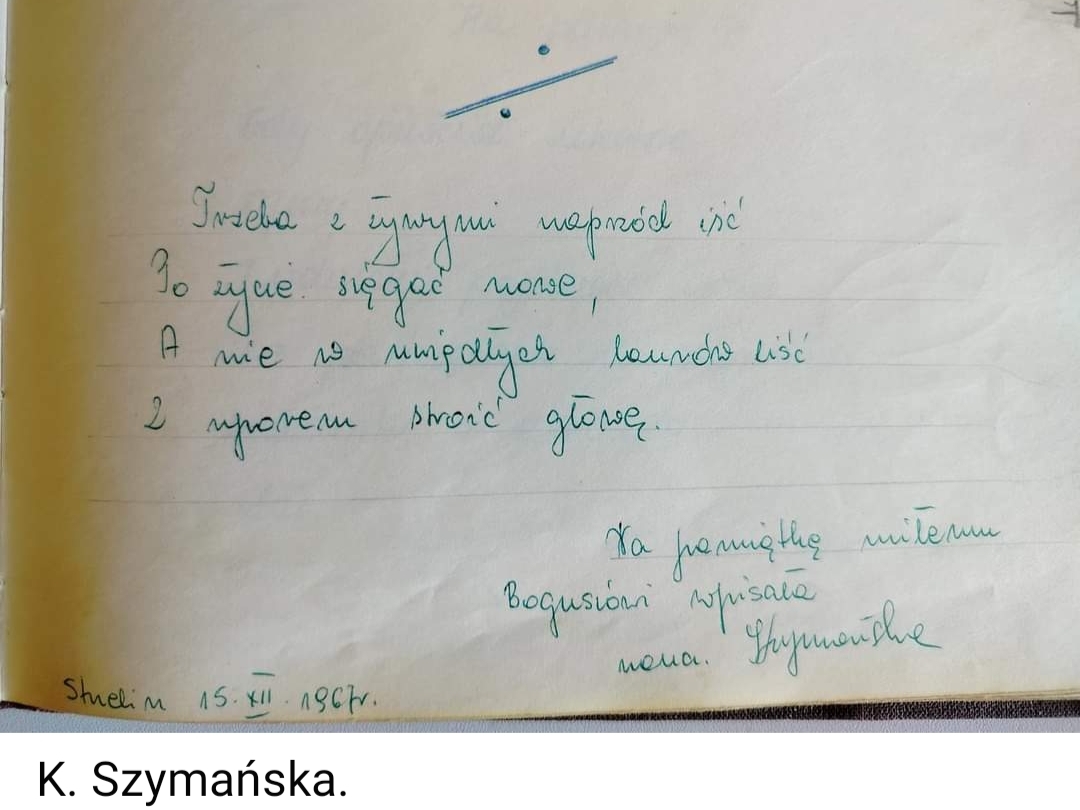 Trzeba z żywymi naprzód iść
Po życie sięgać nowe,
A nie w uwiędłych laurów liść
Z uporem stroić głowę.
Na pamiątkę miłemu
Bogusiowi wpisała
Szymańska
Strzelin 15.XII.1967r.
K. Szymańska.